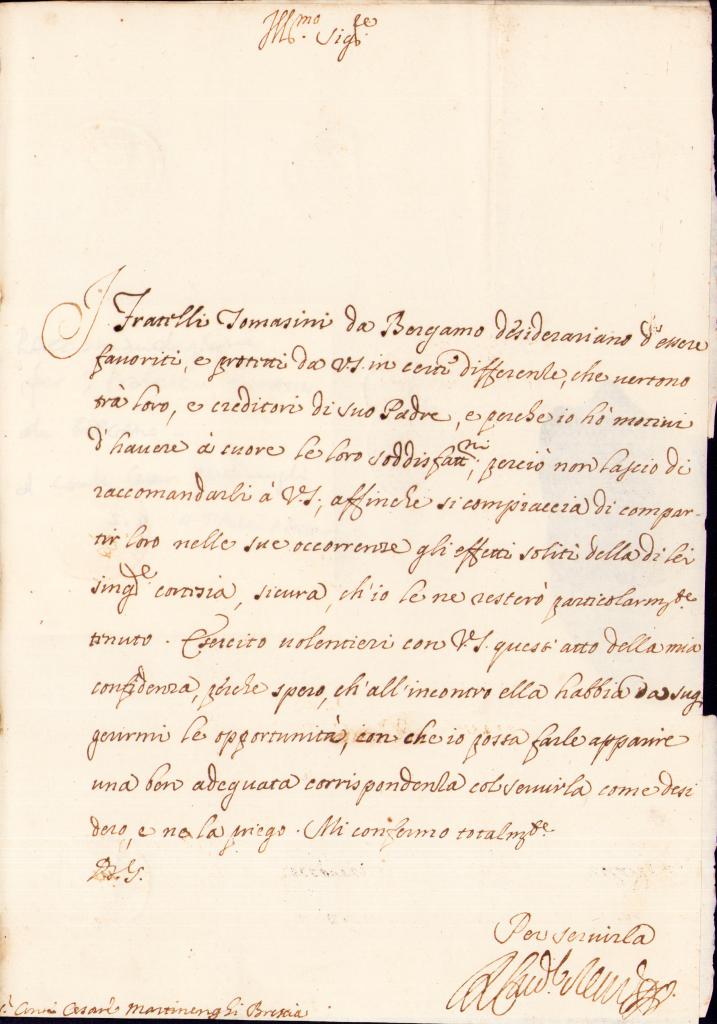 Ill.mo Sig.re
I Fratelli Tomasini da Bergamo desiderariano d'essere
favoriti, e protetti da V.S. in certe differenze, che vertono
trà loro, e creditori di suo Padre, e perche io hò motivi
d'havere à cuore le loro soddisfatt.ni, perciò non lascio di
raccomandarli à V.S., affinche si compiaccia di compar-
tir loro nelle sue occorrenze gli effetti soliti della di lei
sing.le cortesia, sicura, ch'io le ne resterò particolarm.te
tenuto. Esercito volentieri con V.S. quest'atto della mia
confidenza, perche spero, ch'all'incontro ella habbia da sug
gerirmi le opportunità, con che io possa farle apparire
una ben adeguata corrispondenza col servirla come desi
dero, e ne la priego. Mi confermo totalm.te
D.V.S.
Per servirla
Cesare Martinenghi Brescia